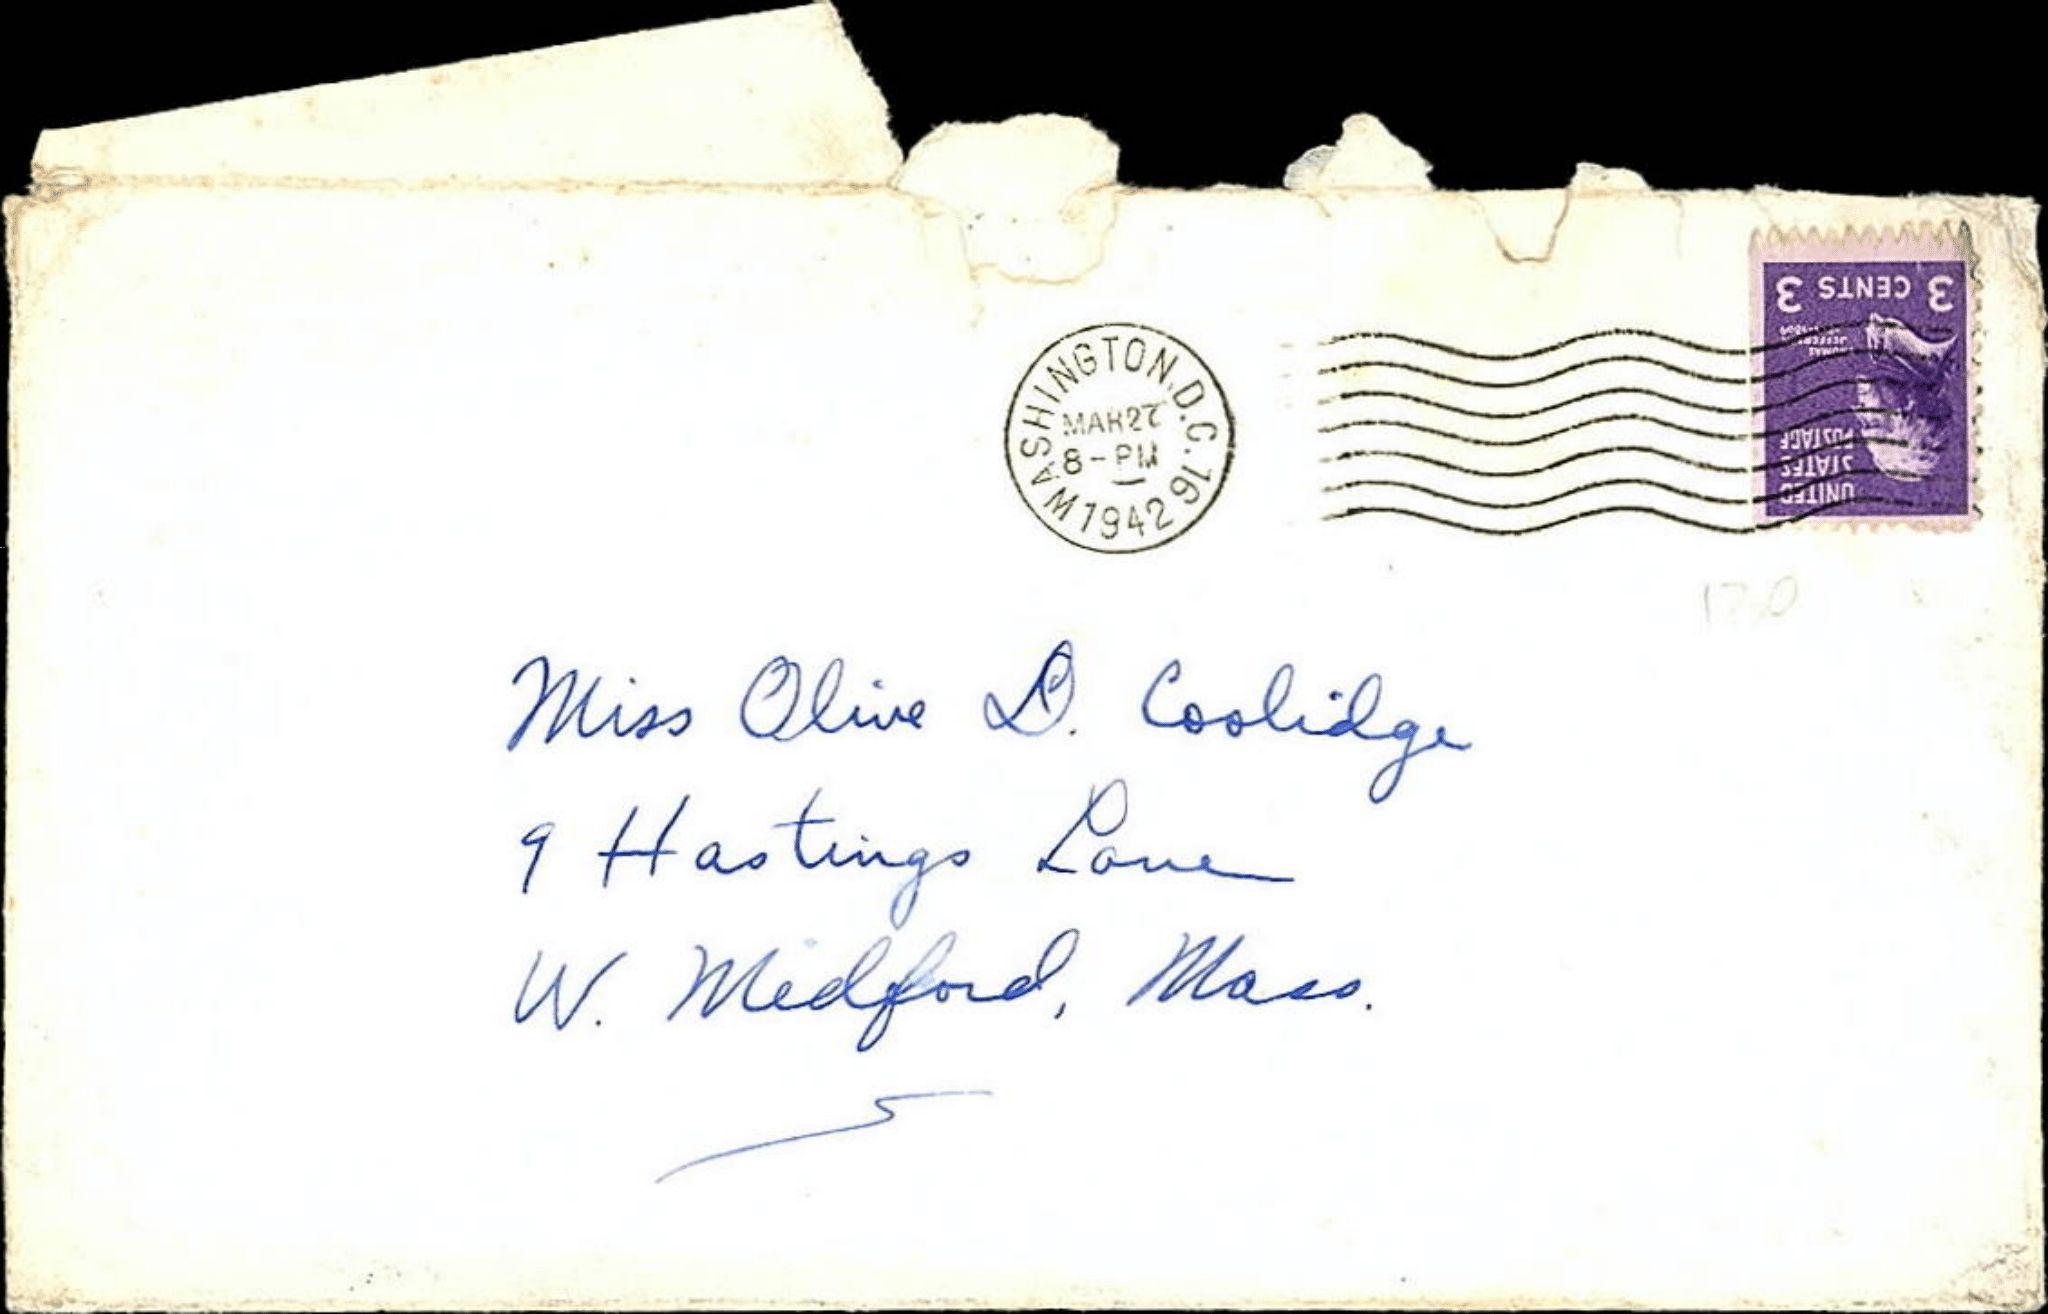 WASHINGTON, D.C. 16
MAR 27
8 - PM
1942
3 CENTS 3
THOMAS
JEFFERSON
UNITED
STATES
POSTAGE
Miss Olive D. Coolidge
9 Hastings Lane
W. Medford, Mass.